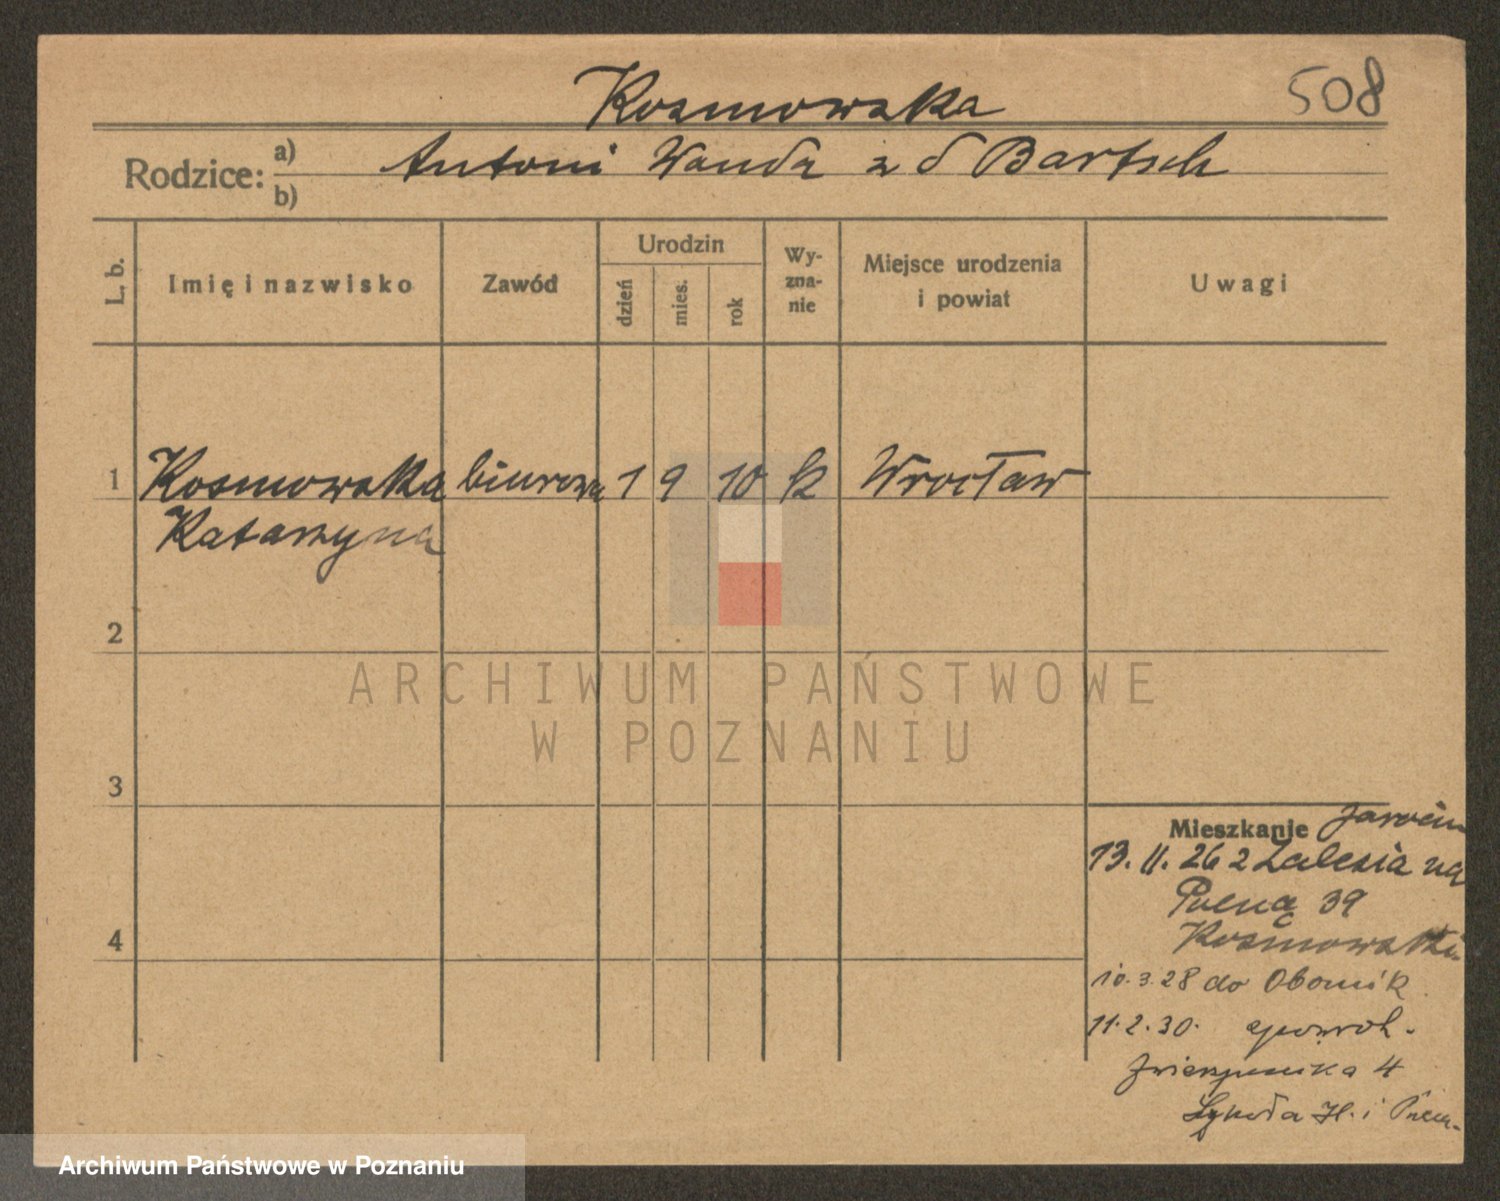 508
Kosmowska
Rodzice: a) Antoni Wanda z d Bartsch
b)
L. b. Imię i nazwisko Zawód Urodzin dzień mies. rok Wy-zna-nie Miejsce urodzenia i powiat Uwagi
1 Kosmowska biurowa 1 9 10 k Wrocław
Katarzyna
2
ARCHIWUM PAŃSTWOWE
W POZNANIU
3
Mieszkanie Jarocin
13. II. 26 z Zalesia na
Polną 39
Kosmowski
4
10.3.28 do Obornik
11.2.30.
Zwierzyniecka 4
Szkoła H. i
Archiwum Państwowe w Poznaniu